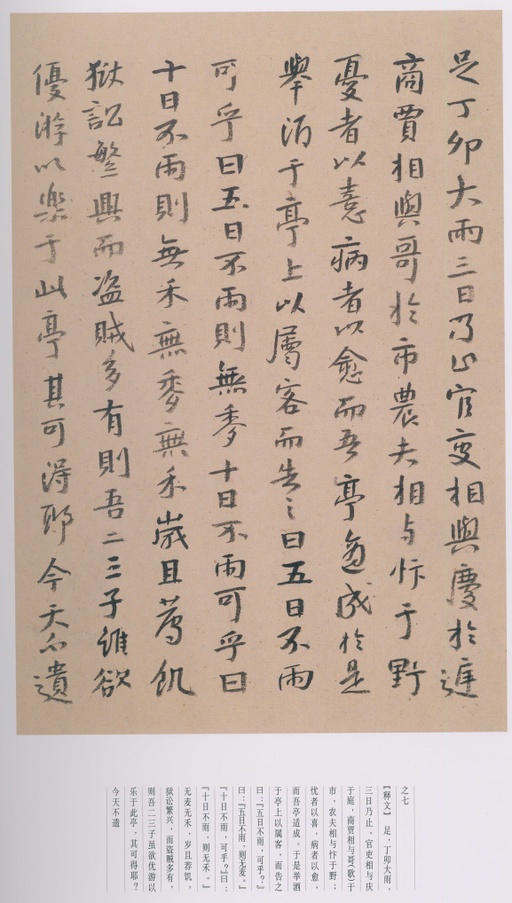 足丁卯大雨三日乃止官吏相與慶於庭
商賈相與哥於市農夫相与忭于野
憂者以憙病者以愈而吾亭適成於是
舉酒于亭上以屬客而告之曰五日不雨
可乎曰五日不雨則無麥十日不雨可乎曰
十日不雨則無禾無麥無禾歲且荐飢
獄訟繁興而盗賊多有則吾二三子雖欲
優游以樂于此亭其可得耶今天不遺
之七
【释文】 足,丁卯大雨,
三日乃止。官吏相与庆
于庭,商贾相与哥(歌)于
市,农夫相与忭于野;
忧者以喜,病者以愈,
而吾亭适成。于是举酒
于亭上以属客,而告之
曰:『五日不雨,可乎?』
曰:『五日不雨,则无麦。』
『十日不雨,可乎?』曰:
『十日不雨,则无禾。』
无麦无禾,岁且荐饥,
狱讼繁兴,而盗贼多有,
则吾二三子虽欲优游以
乐于此亭,其可得耶?
今天不遗